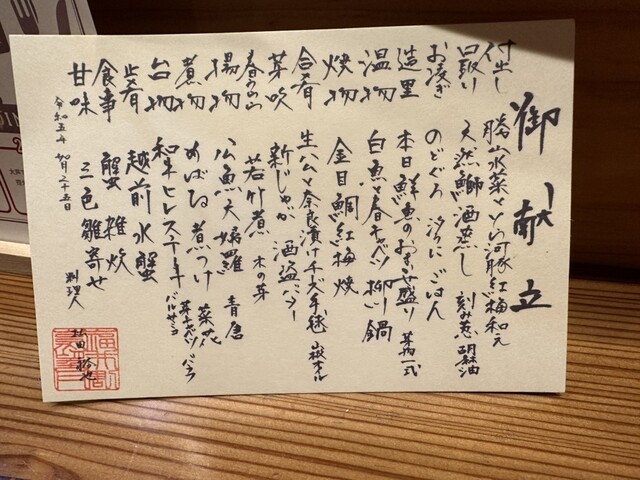 御献立
付出し 勝山水菜とふぐ河豚紅梅和え
口取り 天然鰤酒蒸し 刻み葱 胡麻油
お凌ぎ のどぐろ ごはん
造里 本日鮮魚のおまかせ盛り 一式
温物 白魚と春キャベツ 柳川鍋
焼物 金目鯛紅梅焼
合肴 生ハムと奈良漬けチーズ手毬 オイル
菜吹 新じゃが 酒盗バター
春の山 若竹煮 木の芽
揚物 公魚天婦羅 菜花 青唐
煮物 めばる煮つけ
台物 和牛ヒレステーキ 芽キャベツ バルサミコ
止肴 越前水蟹
食事 蟹雑炊
甘味 三色雛寄せ
令和五年 如月二十五日
料理人